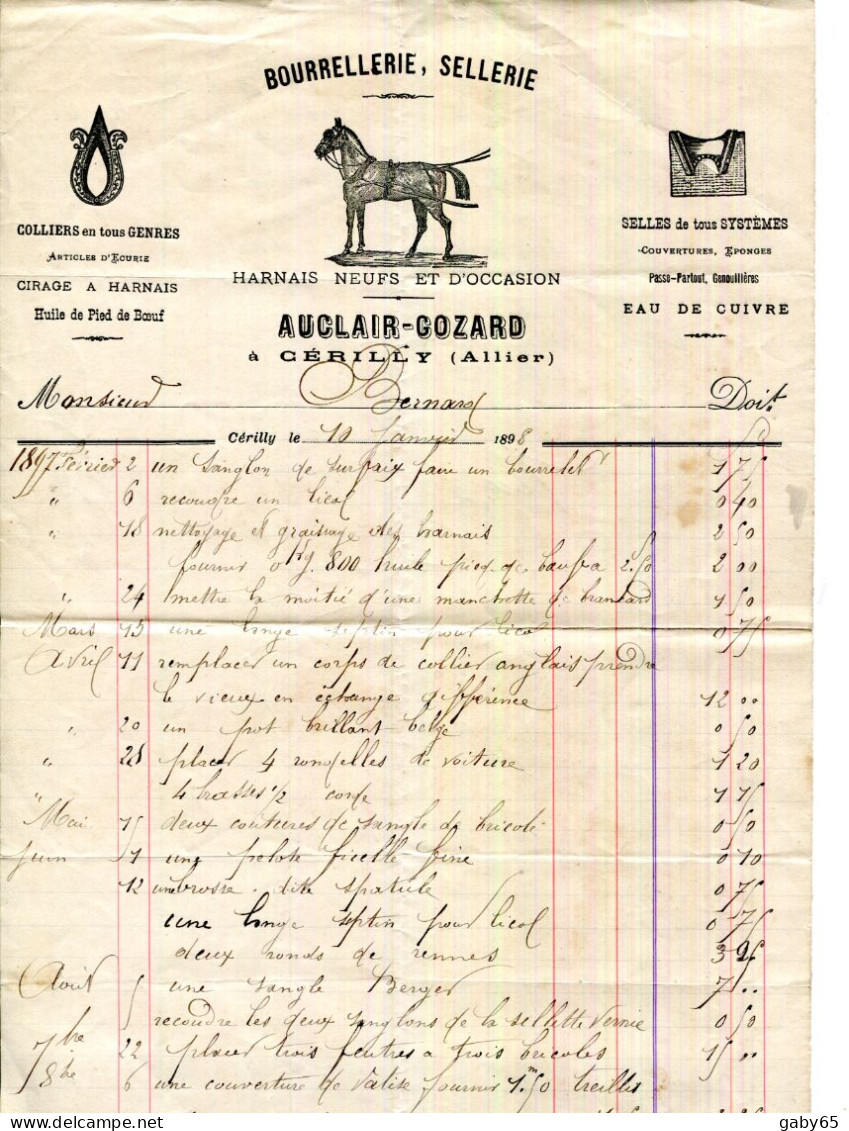 BOURRELLERIE, SELLERIE
COLLIERS en tous GENRES
ARTICLES D'ECURIE
CIRAGE A HARNAIS
Huile de Pied de Bœuf
HARNAIS NEUFS ET D'OCCASION
AUCLAIR-GOZARD
à CÉRILLY (Allier)
SELLES de tous SYSTÈMES
COUVERTURES, EPONGES
Passe-Partout, Genouillères
EAU DE CUIVRE
Monsieur Bernard Doit
Cérilly le 10 Janvier 1898
1897 Février 2 un sanglon de surfaix faire un bourrelet 1 75
" 6 recoudre un licol 0 40
" 18 nettoyage et graissage des harnais 2 50
fournir 0 kg. 800 huile pied de bœuf a 2.50 2 00
" 24 mettre la moitié d'une manchette de brancard 1 50
Mars 15 une longe septin pour licol 0 75
Avril 11 remplacer un corps de collier anglais prendre
le vieux en échange différence 12 00
" 20 un pot brillant belge 0 50
" 28 placer 4 rondelles de voiture 1 20
" 4 brasses 1/2 corde 1 15
Mai 15 deux coutures de sangle de bricole 0 50
Juin 1 une pelote ficelle fine 0 10
12 une brosse dite spatule 0 75
une longe septin pour licol 0 75
deux ronds de rennes
Août 5 une sangle Berger 7 00
recoudre les deux sanglons de la sellette vernie 0 50
7bre 22 placer trois feutres a trois bricoles 15 00
8bre 6 une couverture de valise fournir 1m.50 treillis
gaby65